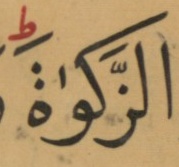 الزَّكٰوةَ ؕ